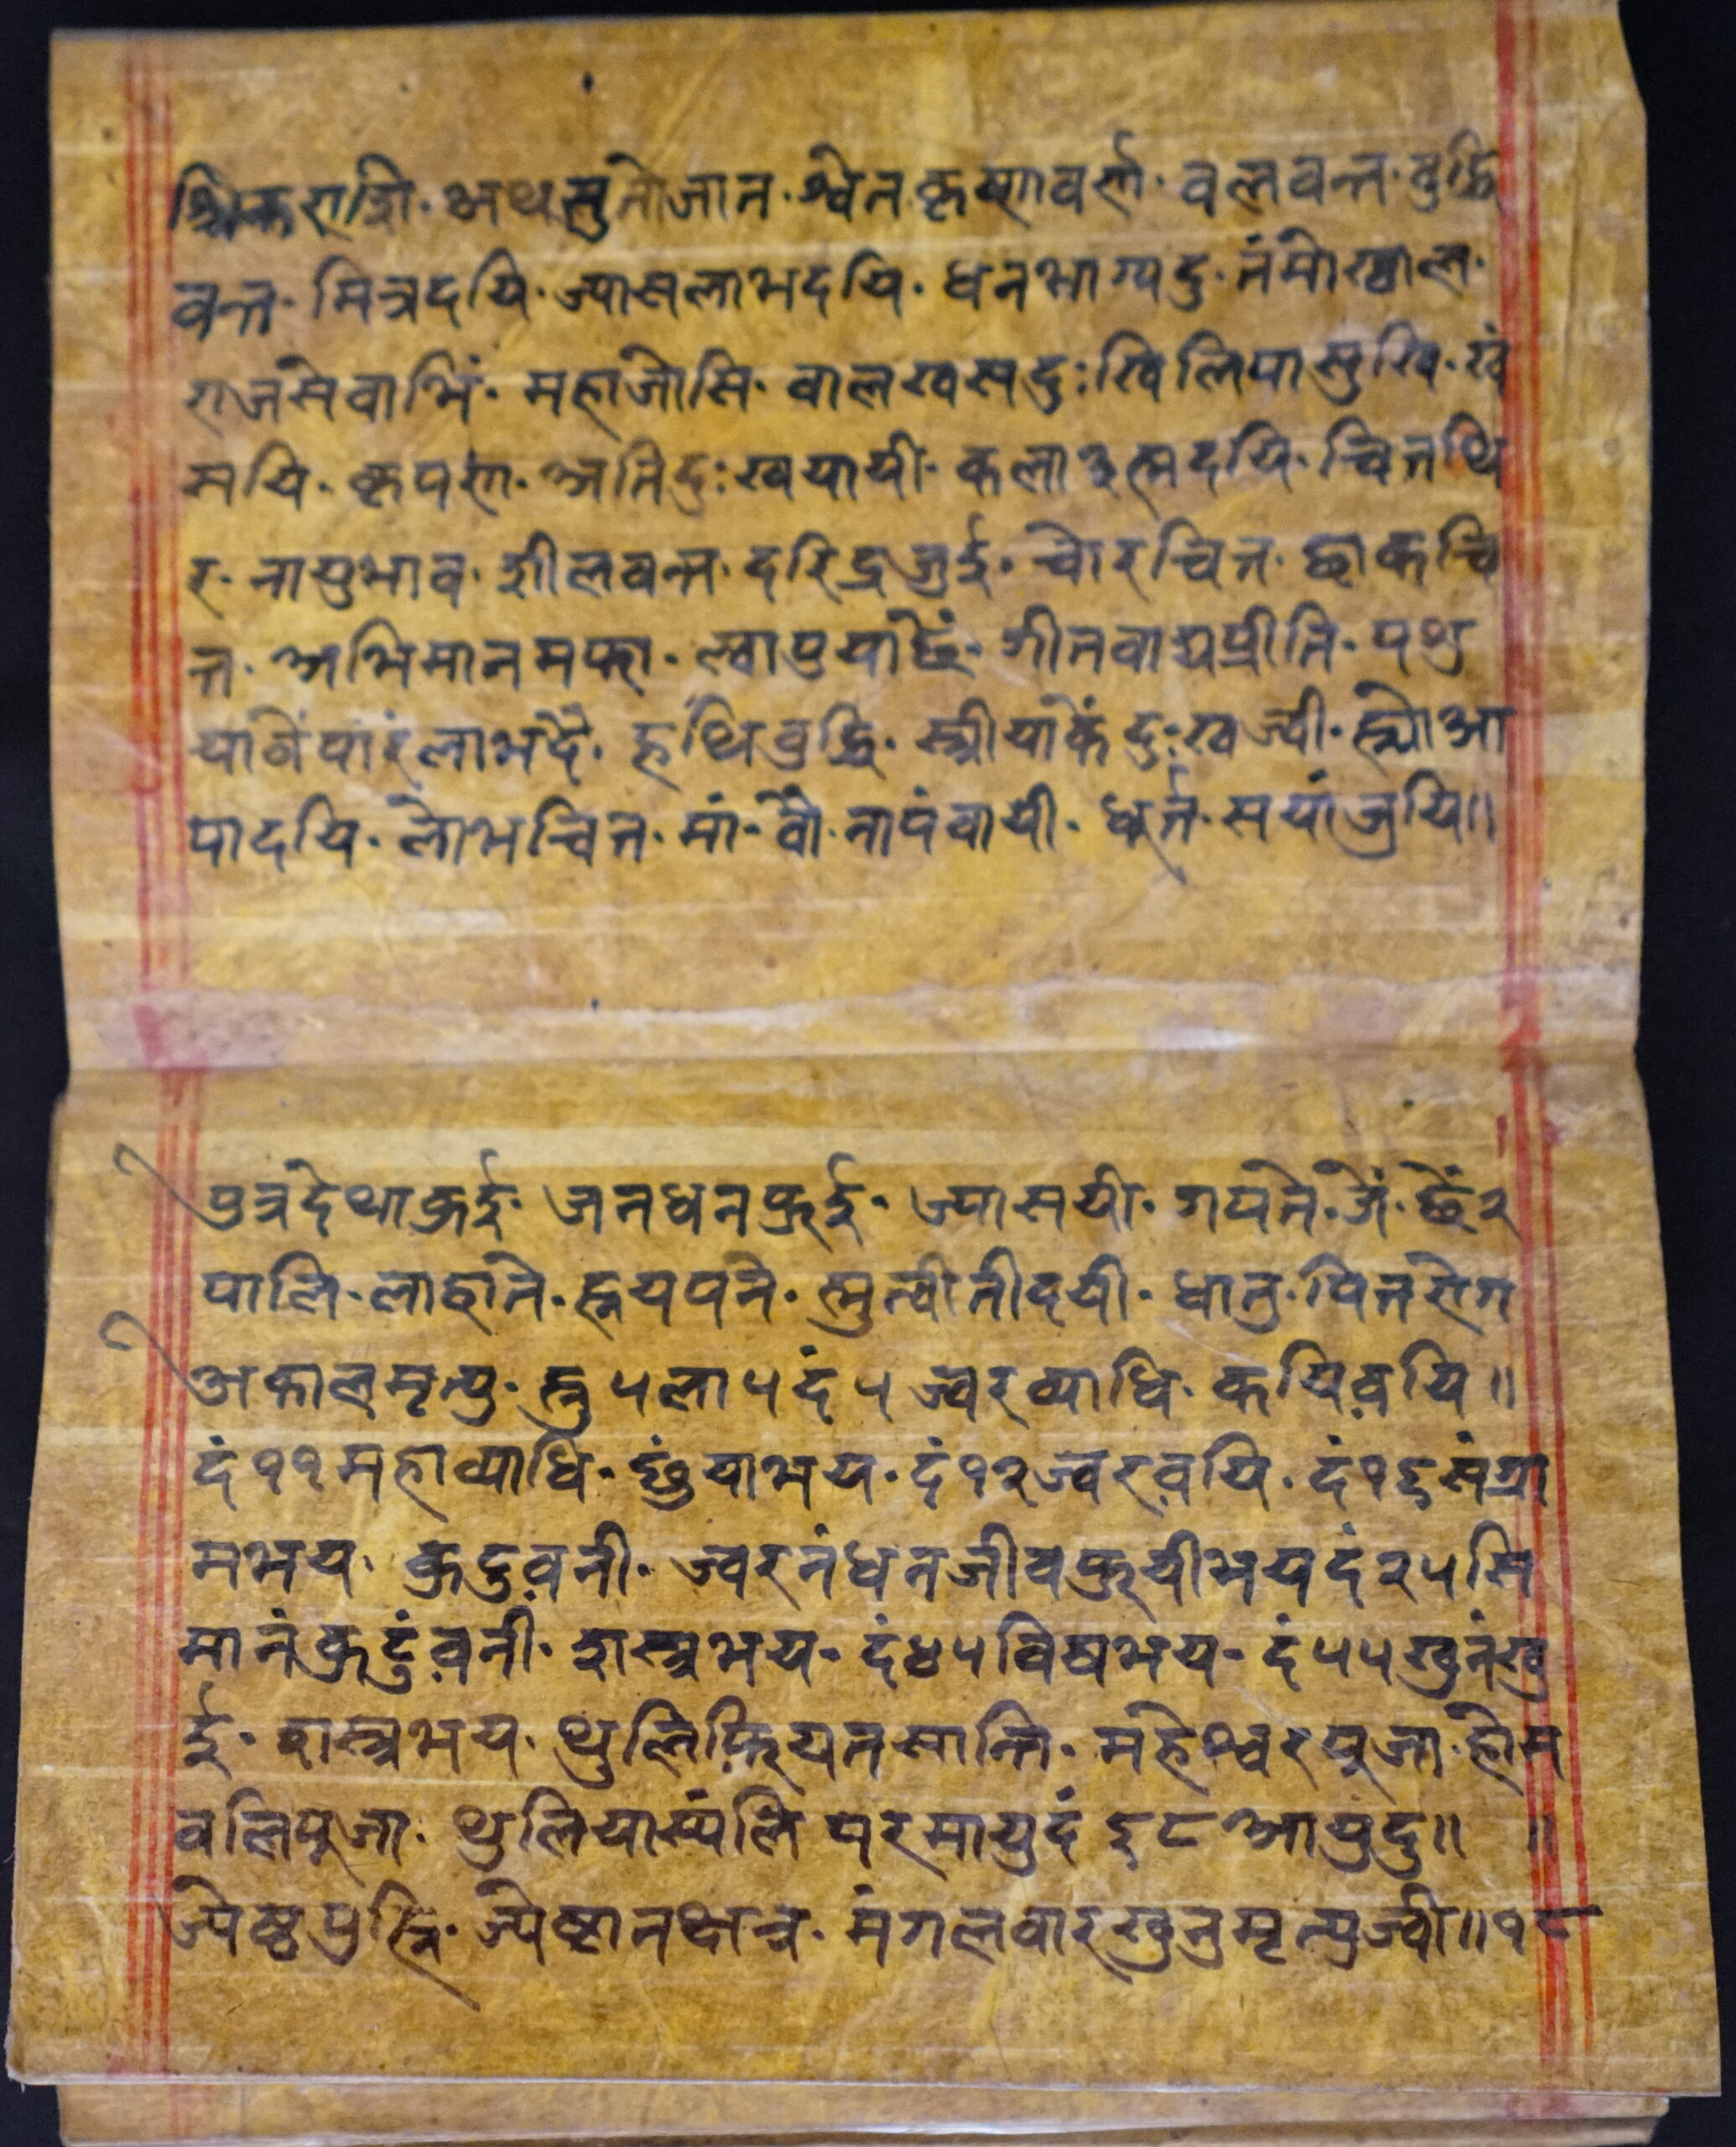 राशि. अथ जात. श्वेत कृष्णवर्ण. वलवन्त. वुद्धि
वन्त. मित्रदयि. ज्यासलाभदयि. धनभाग्यदु. नंमोख्वाल.
राजसेवाभिं. महाजोसि. वालखसदुःखि लिपासुखि. खं
मयि. कृपण. अतिदुःखयायी. कला दयि. चितथि
र. नायुभाव. शीलवन्त. दरिद्रजुई. चोरचित. छाकचि
त. अभिमान मफा. ल्वापुयाछें. गीतवाद्यप्रीति. पशु
लाभदै. वुद्धि. स्त्रीयाकें दुःखज्वी. आ
पादयि. लोभचित. मां. वौ. नापंवायी. धूर्त. सयांजुयि॥
पुत्रदेथाकुई. जनधनफुई. ज्यासयी. गपने. जें. छें २
पालि. लाहाने. ह्नयपने. धातु. पितरोग
अकालमृत्यु. ह्नु ५ ला ५ दं ५ ज्वरव्याधि. कयिव़यि॥
दं ११ महाव्याधि. धुंयाभय. दं १२ ज्वरव़यि. दं १६ संग्रा
मभय. कुदुव़नी. ज्वरनं धनजीवफुयीभय दं २५ सि
मानं कुदुंव़नी. शस्त्रभय. दं ४५ विषभय. दं ५५ खुनंखु
ई. शस्त्रभय. थुलिफियतसान्ति. महेश्वरपुजा. होम
वलिपुजा. थुलियास्यंलि परमायुदं ६८ आयुदु॥ ॥
ज्येष्ठपुह्नि. ज्येष्ठानक्षत्र. मंगलवारखुनुमृत्युज्वी॥१८